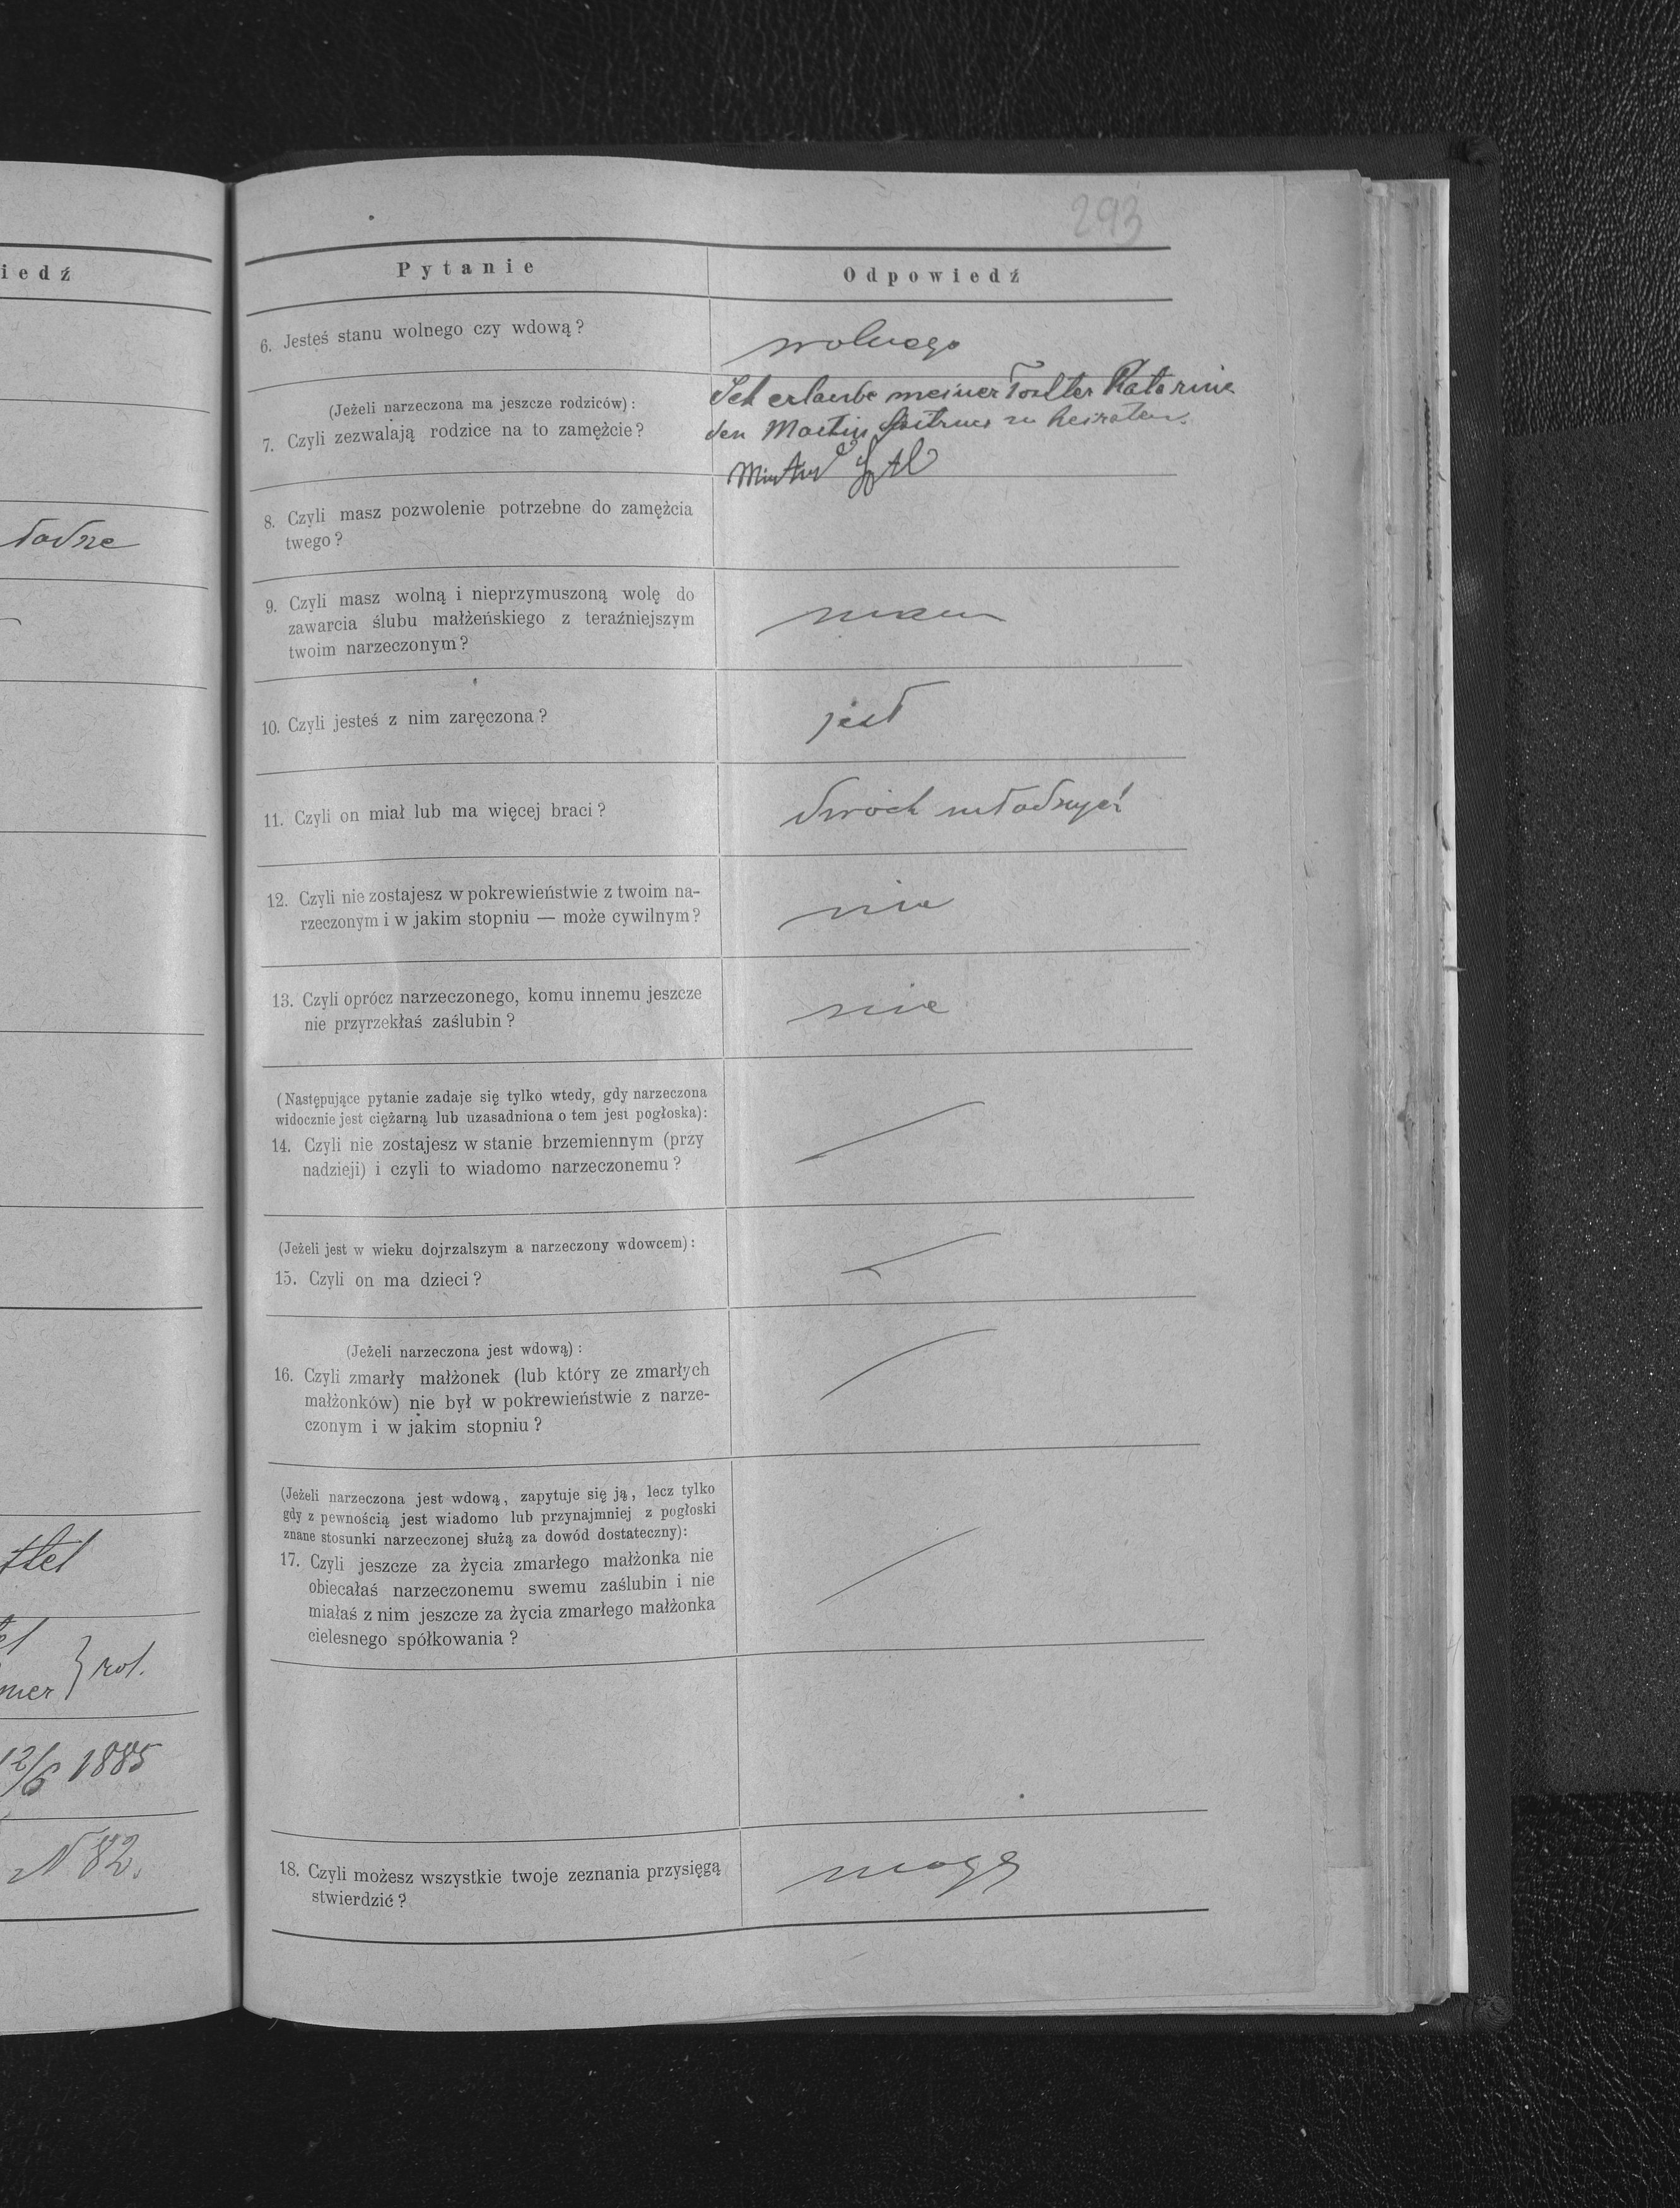 293
iedź
tadze
ttel
mer } rol.
12/6 1885
N 82.
Pytanie
Odpowiedź
6. Jesteś stanu wolnego czy wdową?
wolnego
(Jeżeli narzeczona ma jeszcze rodziców):
7. Czyli zezwalają rodzice na to zamężcie?
Ich erlaube meiner Tochter Katarine
den Martin zu heiraten.
8. Czyli masz pozwolenie potrzebne do zamężcia
twego?
9. Czyli masz wolną i nieprzymuszoną wolę do
zawarcia ślubu małżeńskiego z teraźniejszym
twoim narzeczonym?
mam
10. Czyli jesteś z nim zaręczona?
jest
11. Czyli on miał lub ma więcej braci?
dwóch młodszych
12. Czyli nie zostajesz w pokrewieństwie z twoim na-
rzeczonym i w jakim stopniu — może cywilnym?
nie
13. Czyli oprócz narzeczonego, komu innemu jeszcze
nie przyrzekłaś zaślubin?
nie
(Następujące pytanie zadaje się tylko wtedy, gdy narzeczona
widocznie jest ciężarną lub uzasadniona o tem jest pogłoska):
14. Czyli nie zostajesz w stanie brzemiennym (przy
nadzieji) i czyli to wiadomo narzeczonemu?
(Jeżeli jest w wieku dojrzalszym a narzeczony wdowcem):
15. Czyli on ma dzieci?
(Jeżeli narzeczona jest wdową):
16. Czyli zmarły małżonek (lub który ze zmarłych
małżonków) nie był w pokrewieństwie z narze-
czonym i w jakim stopniu?
(Jeżeli narzeczona jest wdową, zapytuje się ją, lecz tylko
gdy z pewnością jest wiadomo lub przynajmniej z pogłoski
znane stosunki narzeczonej służą za dowód dostateczny):
17. Czyli jeszcze za życia zmarłego małżonka nie
obiecałaś narzeczonemu swemu zaślubin i nie
miałaś z nim jeszcze za życia zmarłego małżonka
cielesnego spółkowania?
18. Czyli możesz wszystkie twoje zeznania przysięgą
stwierdzić?
mogę